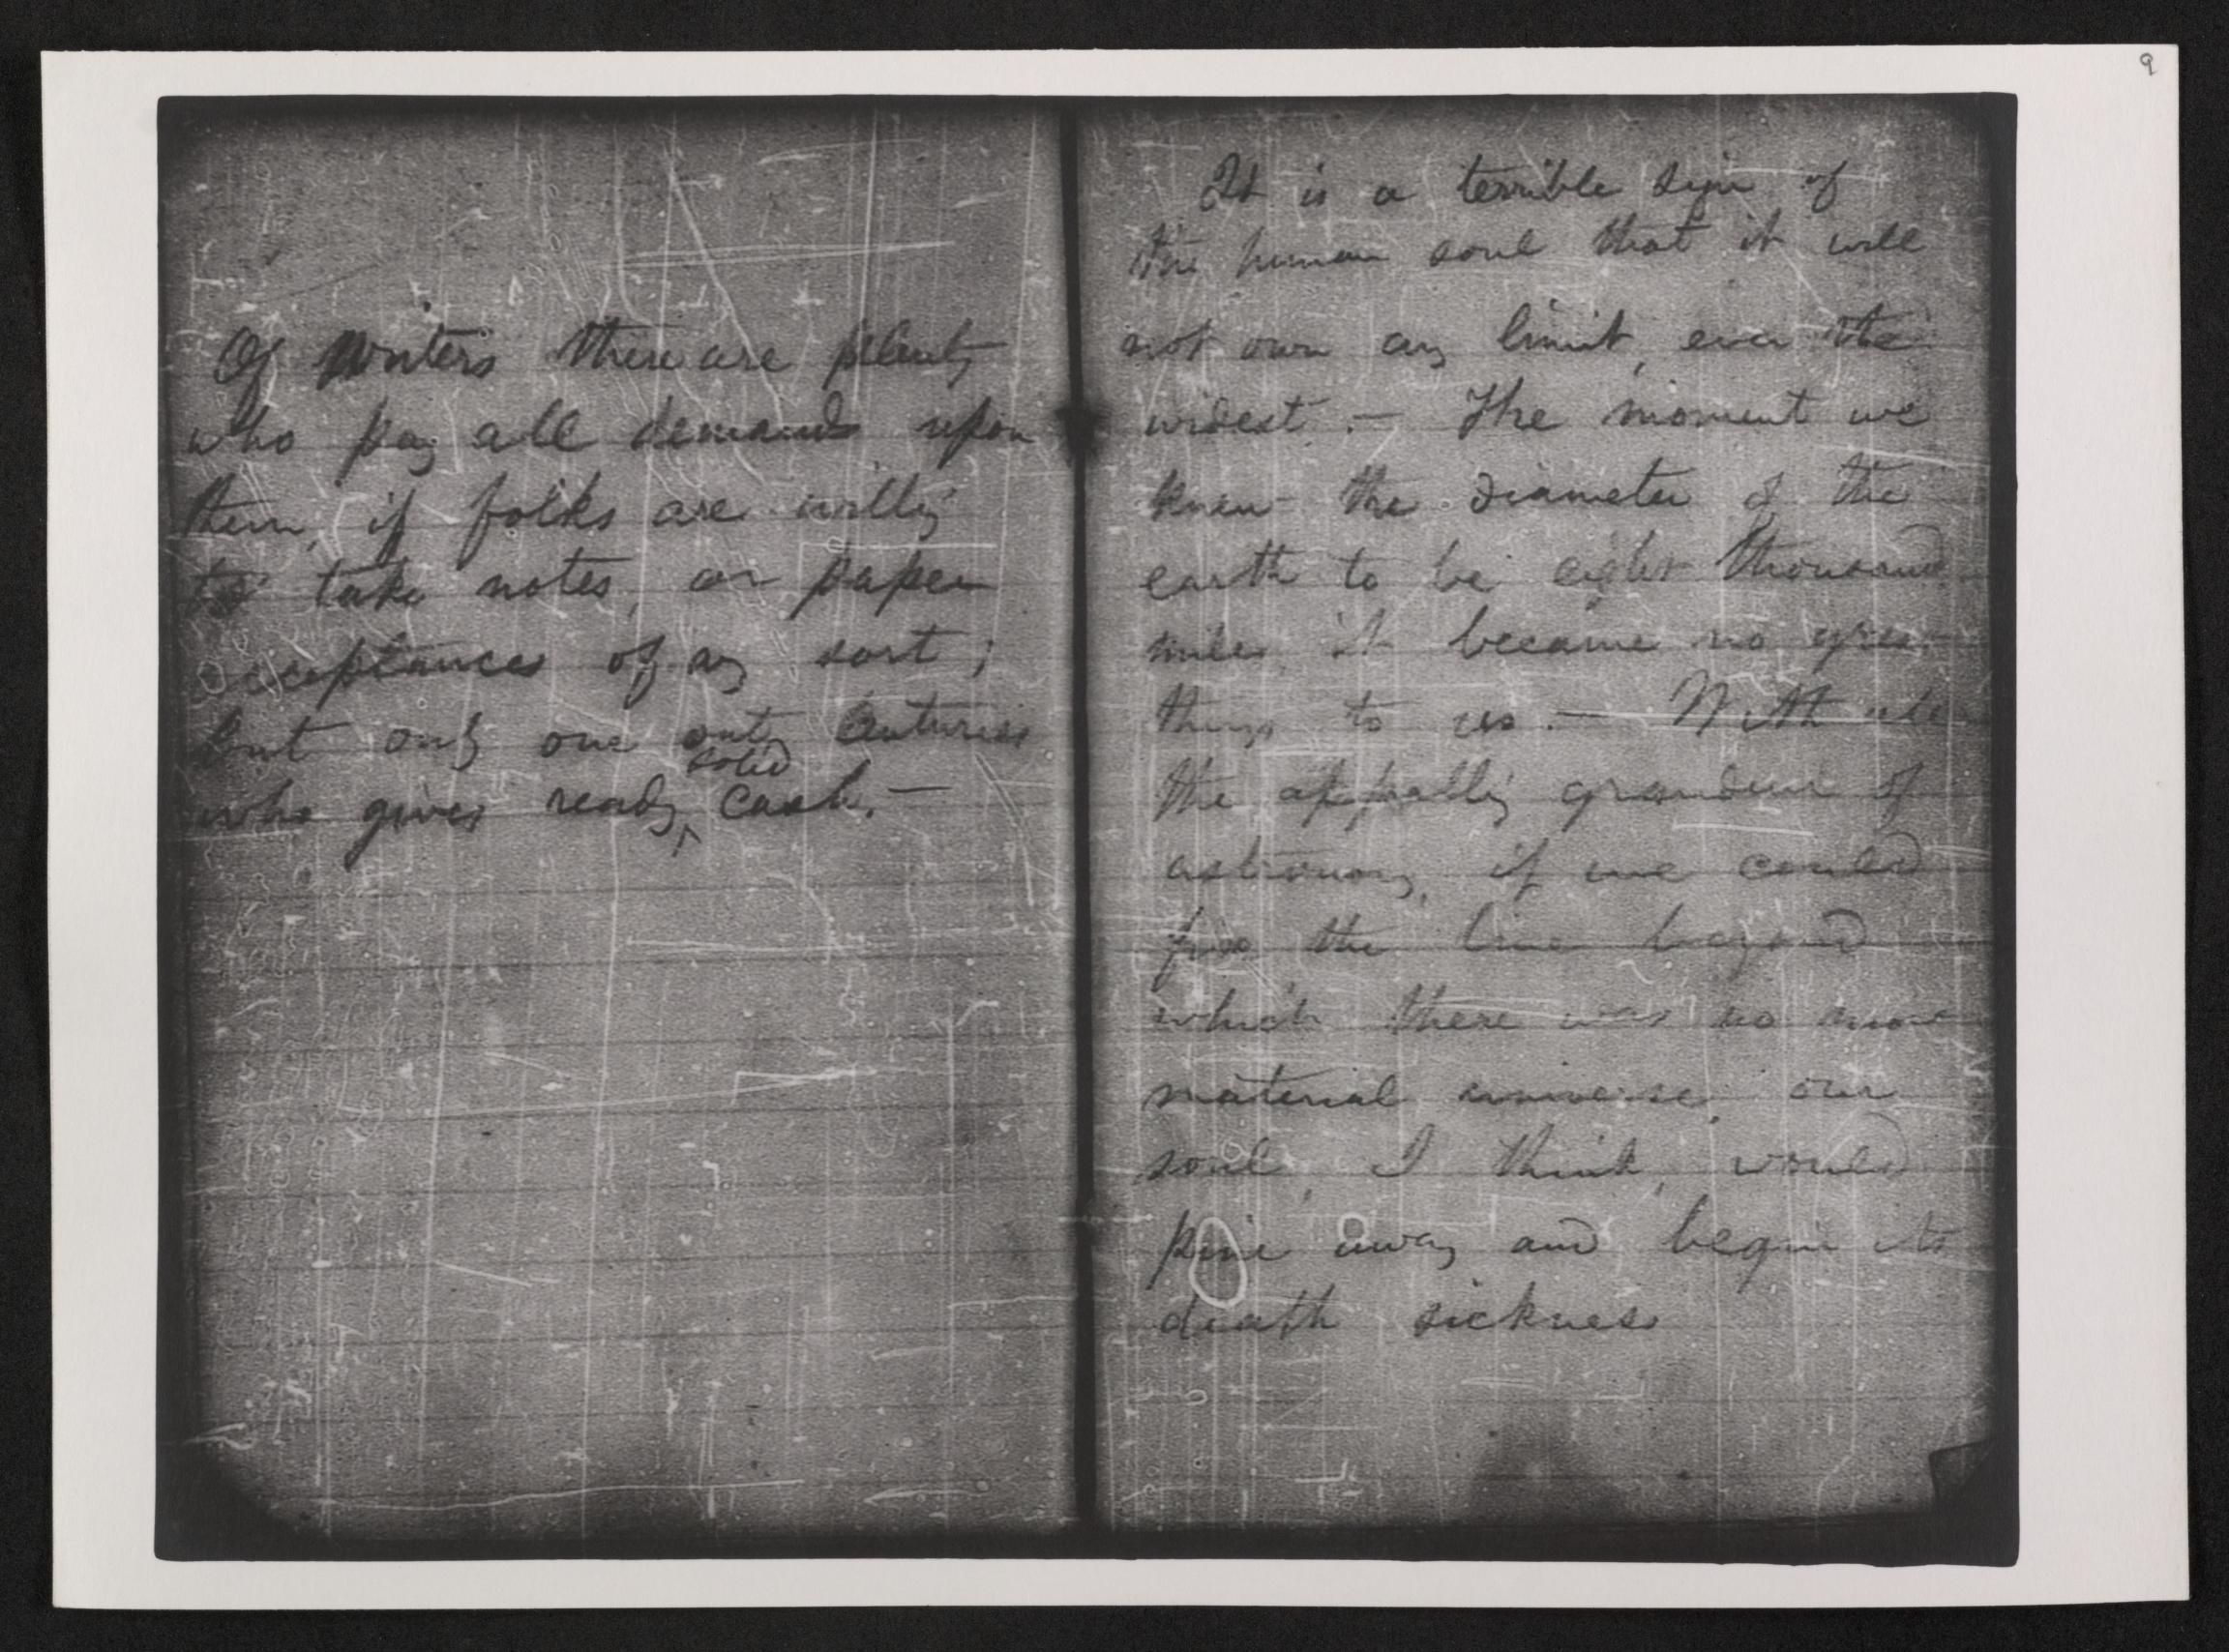 9
Of writers there are plenty
who pay all demands upon
them, if folks are willing
to take notes, or paper
acceptances of any sort;
but only one only centuries
who gives ready solid cash.—
It is a terrible sign of
the human soul that it will
not own any limit, even the
widest.— The moment we
knew the diameter of the
earth to be eight thousand
miles, it became no great
things to us.— With all
the appalling grandeur of
astronomy, if we could
fix the line beyond
which there was no more
material universe, our
soul, I think, would
pine away and begin its
death sickness